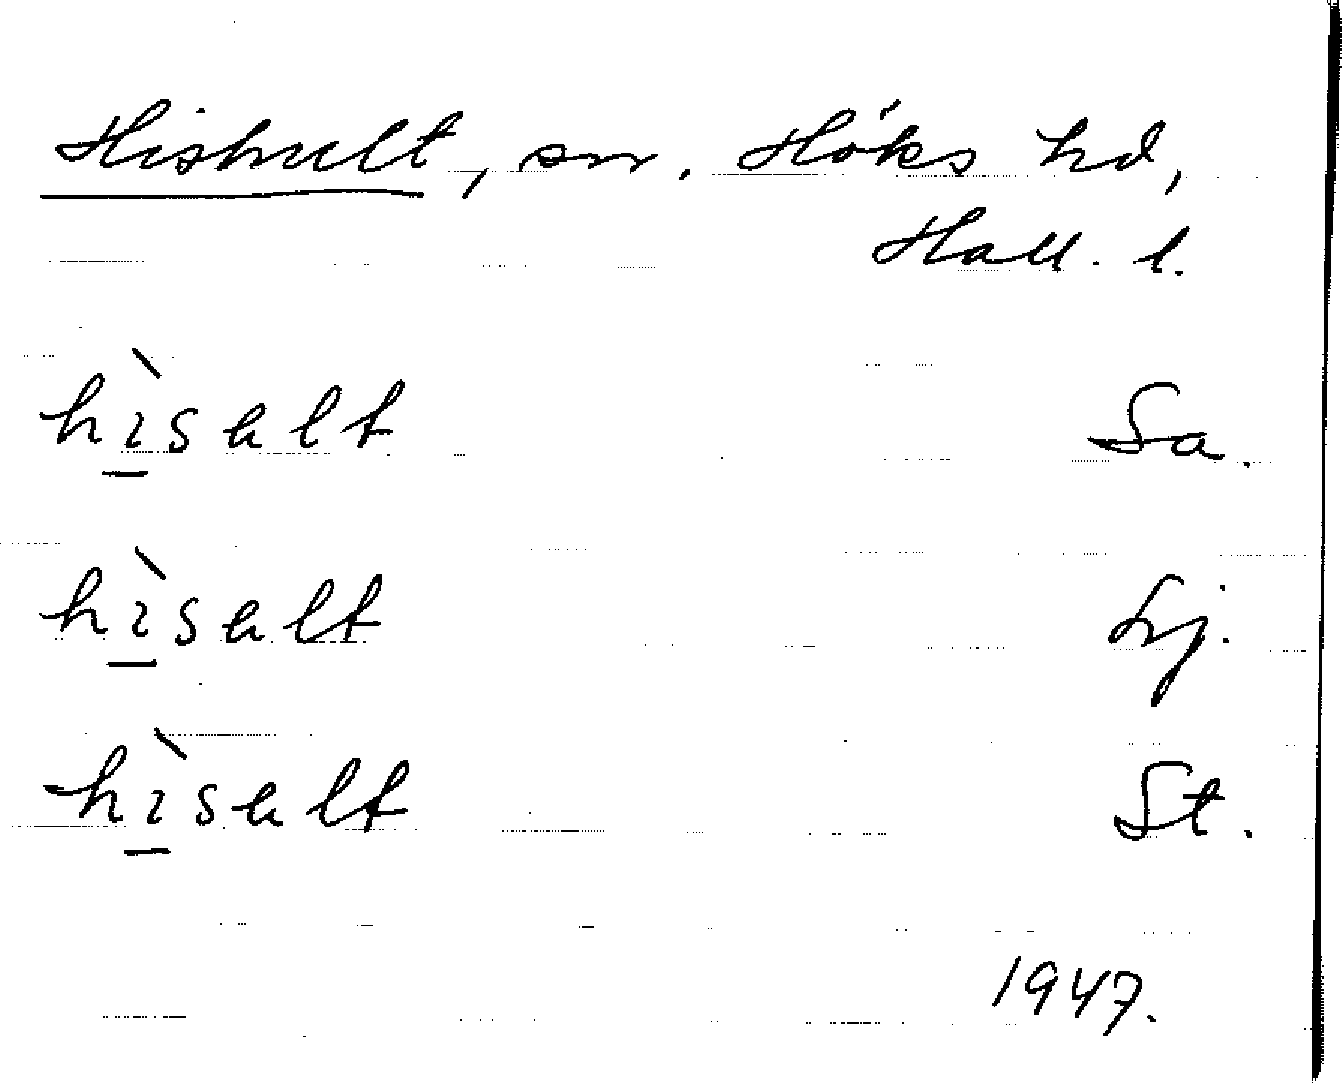 Hishult, sn. Höks hd,
Hall. l.
hìsalt Sa.
hìsalt
hìsalt St.
1947.